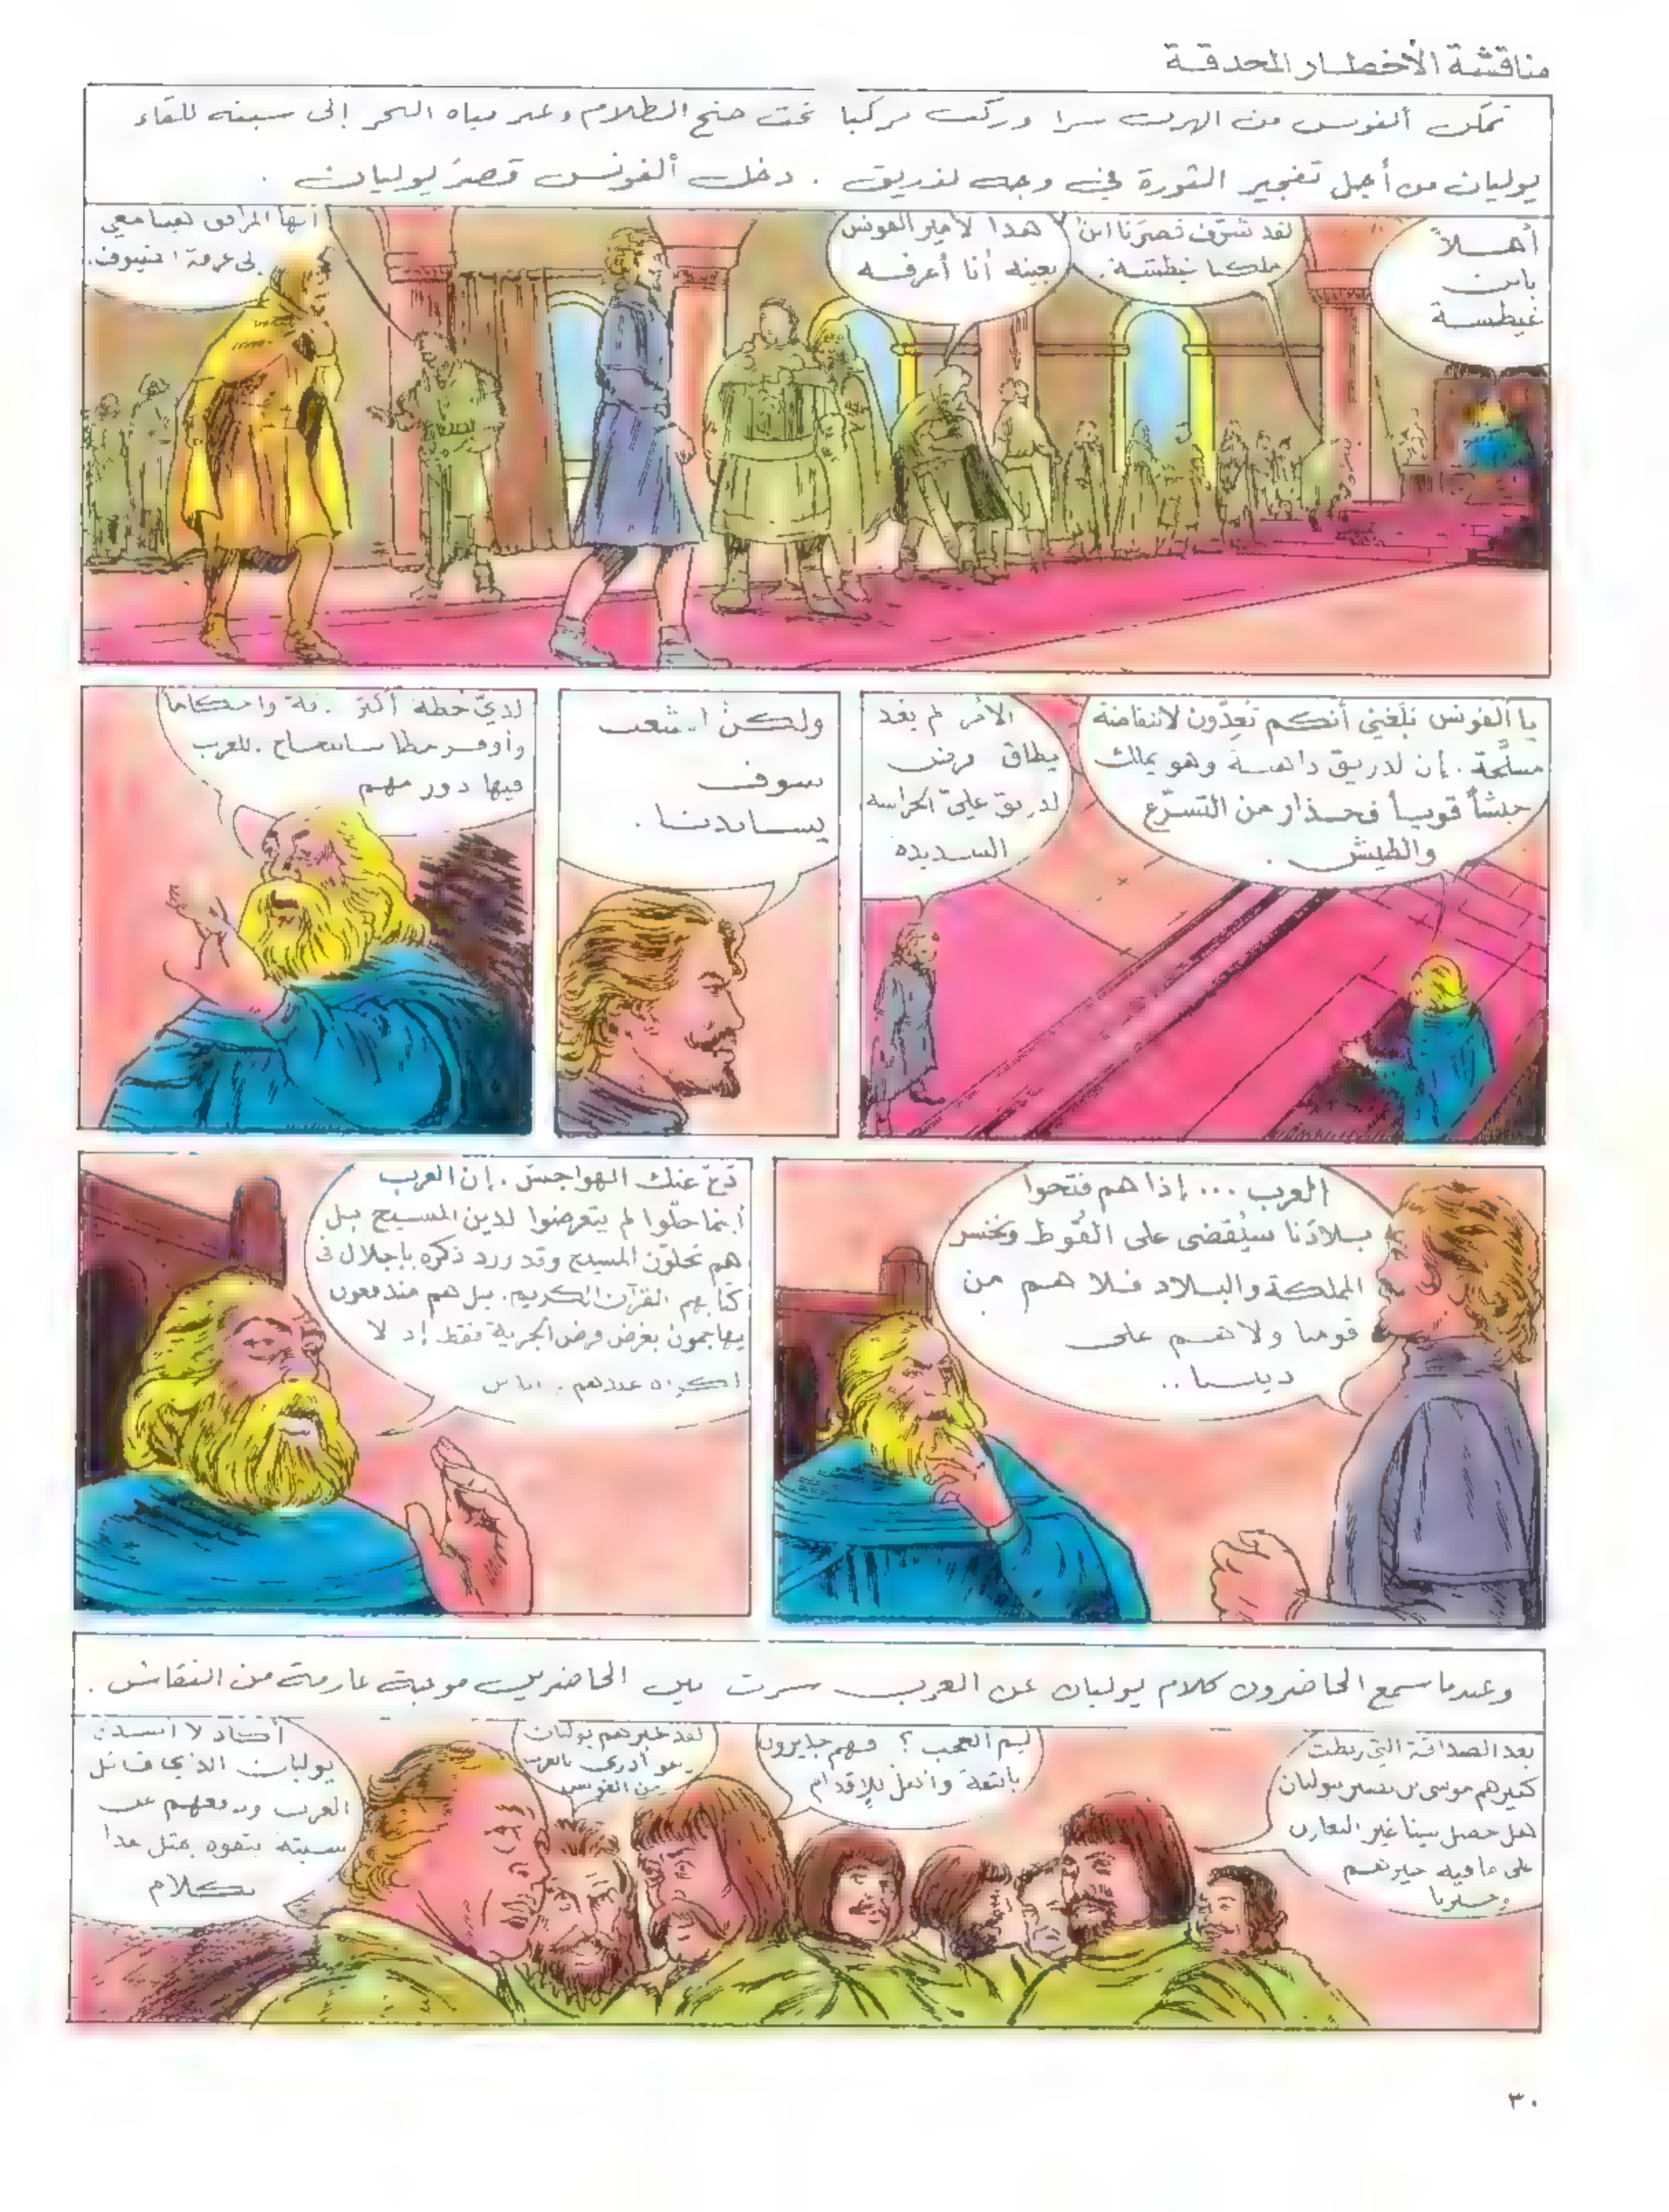 مناقشة الأخطار المحدقة
تمكن ألفونس من الهرب سرا وركب مركبا تحت جنح الظلام وعبر مياه البحر إلى سبته للقاء
يوليان من أجل تفجير الثورة في وجه لذريق . دخل ألفونس قصر يوليان .
أهلاً
بابن
غيطسة
لقد شرّف قصرَنا ابن
ملكنا غيطسة .
هذا الأمير ألفونس
بعينه أنا أعرفه
أيها المرافق هيا معي
إلى غرفة الضيوف .
يا ألفونس بلغني أنكم تعِدّون لانتفاضة
مسلّحة . إن لذريق داهية وهو يملك
جيشاً قوياً فحذار من التسرّع
والطيش .
الأمر لم يعد
يطاق فرض
لذريق عليّ الحراسة
الشديدة
ولكنْ الشعب
سوف
يساندنا .
لديّ خطة أكثر دقة وإحكاما
وأوفر حظا بالنجاح . للعرب
فيها دور مهم
العرب ... إذا هم فتحوا
بلادَنا سيُقضى على القُوط ونخسر
المملكة والبلاد فلا هم من
قومنا ولا هم على
ديننا ..
دَعْ عنك الهواجس . إن العرب
أينما حلّوا لم يتعرضوا لدين المسيح بل
هم يجلّون المسيح وقد ورد ذكره بإجلال في
كتابهم القرآن الكريم . بل هم مندفعون
يهاجمون بغرض فرض الجزية فقط إذ لا
إكراه عندهم .
وعندما سمع الحاضرون كلام يوليان عن العرب سرت بين الحاضرين موجة عارمة من النقاش .
بعد الصداقة التي ربطت
كبيرهم موسى بن نصير بيوليان
هل حصل بيننا غير التعاون
على ما فيه خيرهم
وخيرنا
لِمَ العجب ؟ فهم جديرون
بالثقة وأهل للإقدام
لقد خبرهم يوليان
وهو أدرى بالعرب
من ألفونس
أكاد لا أصدق
يوليان الذي قاتل
العرب ودفعهم عن
سبتة يتفوه بمثل هذا
الكلام
٣٠